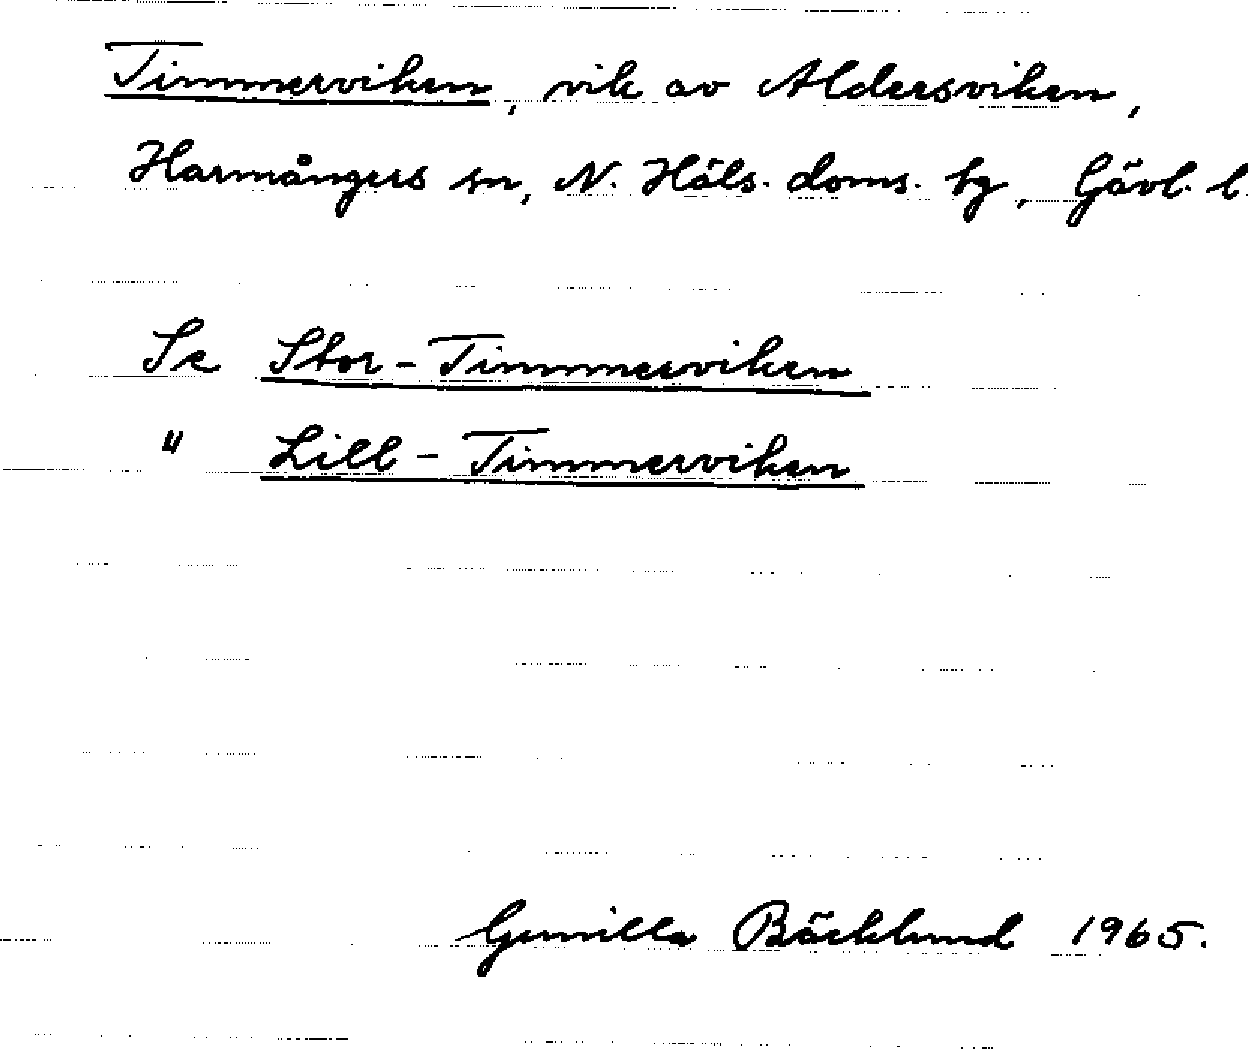 Timmerviken, vik av Aldersviken,
Harmångers sn, N. Häls. doms. tg, Gävl. l.
Se Stor-Timmerviken
" Lill-Timmerviken
Gunilla Bäcklund 1965.